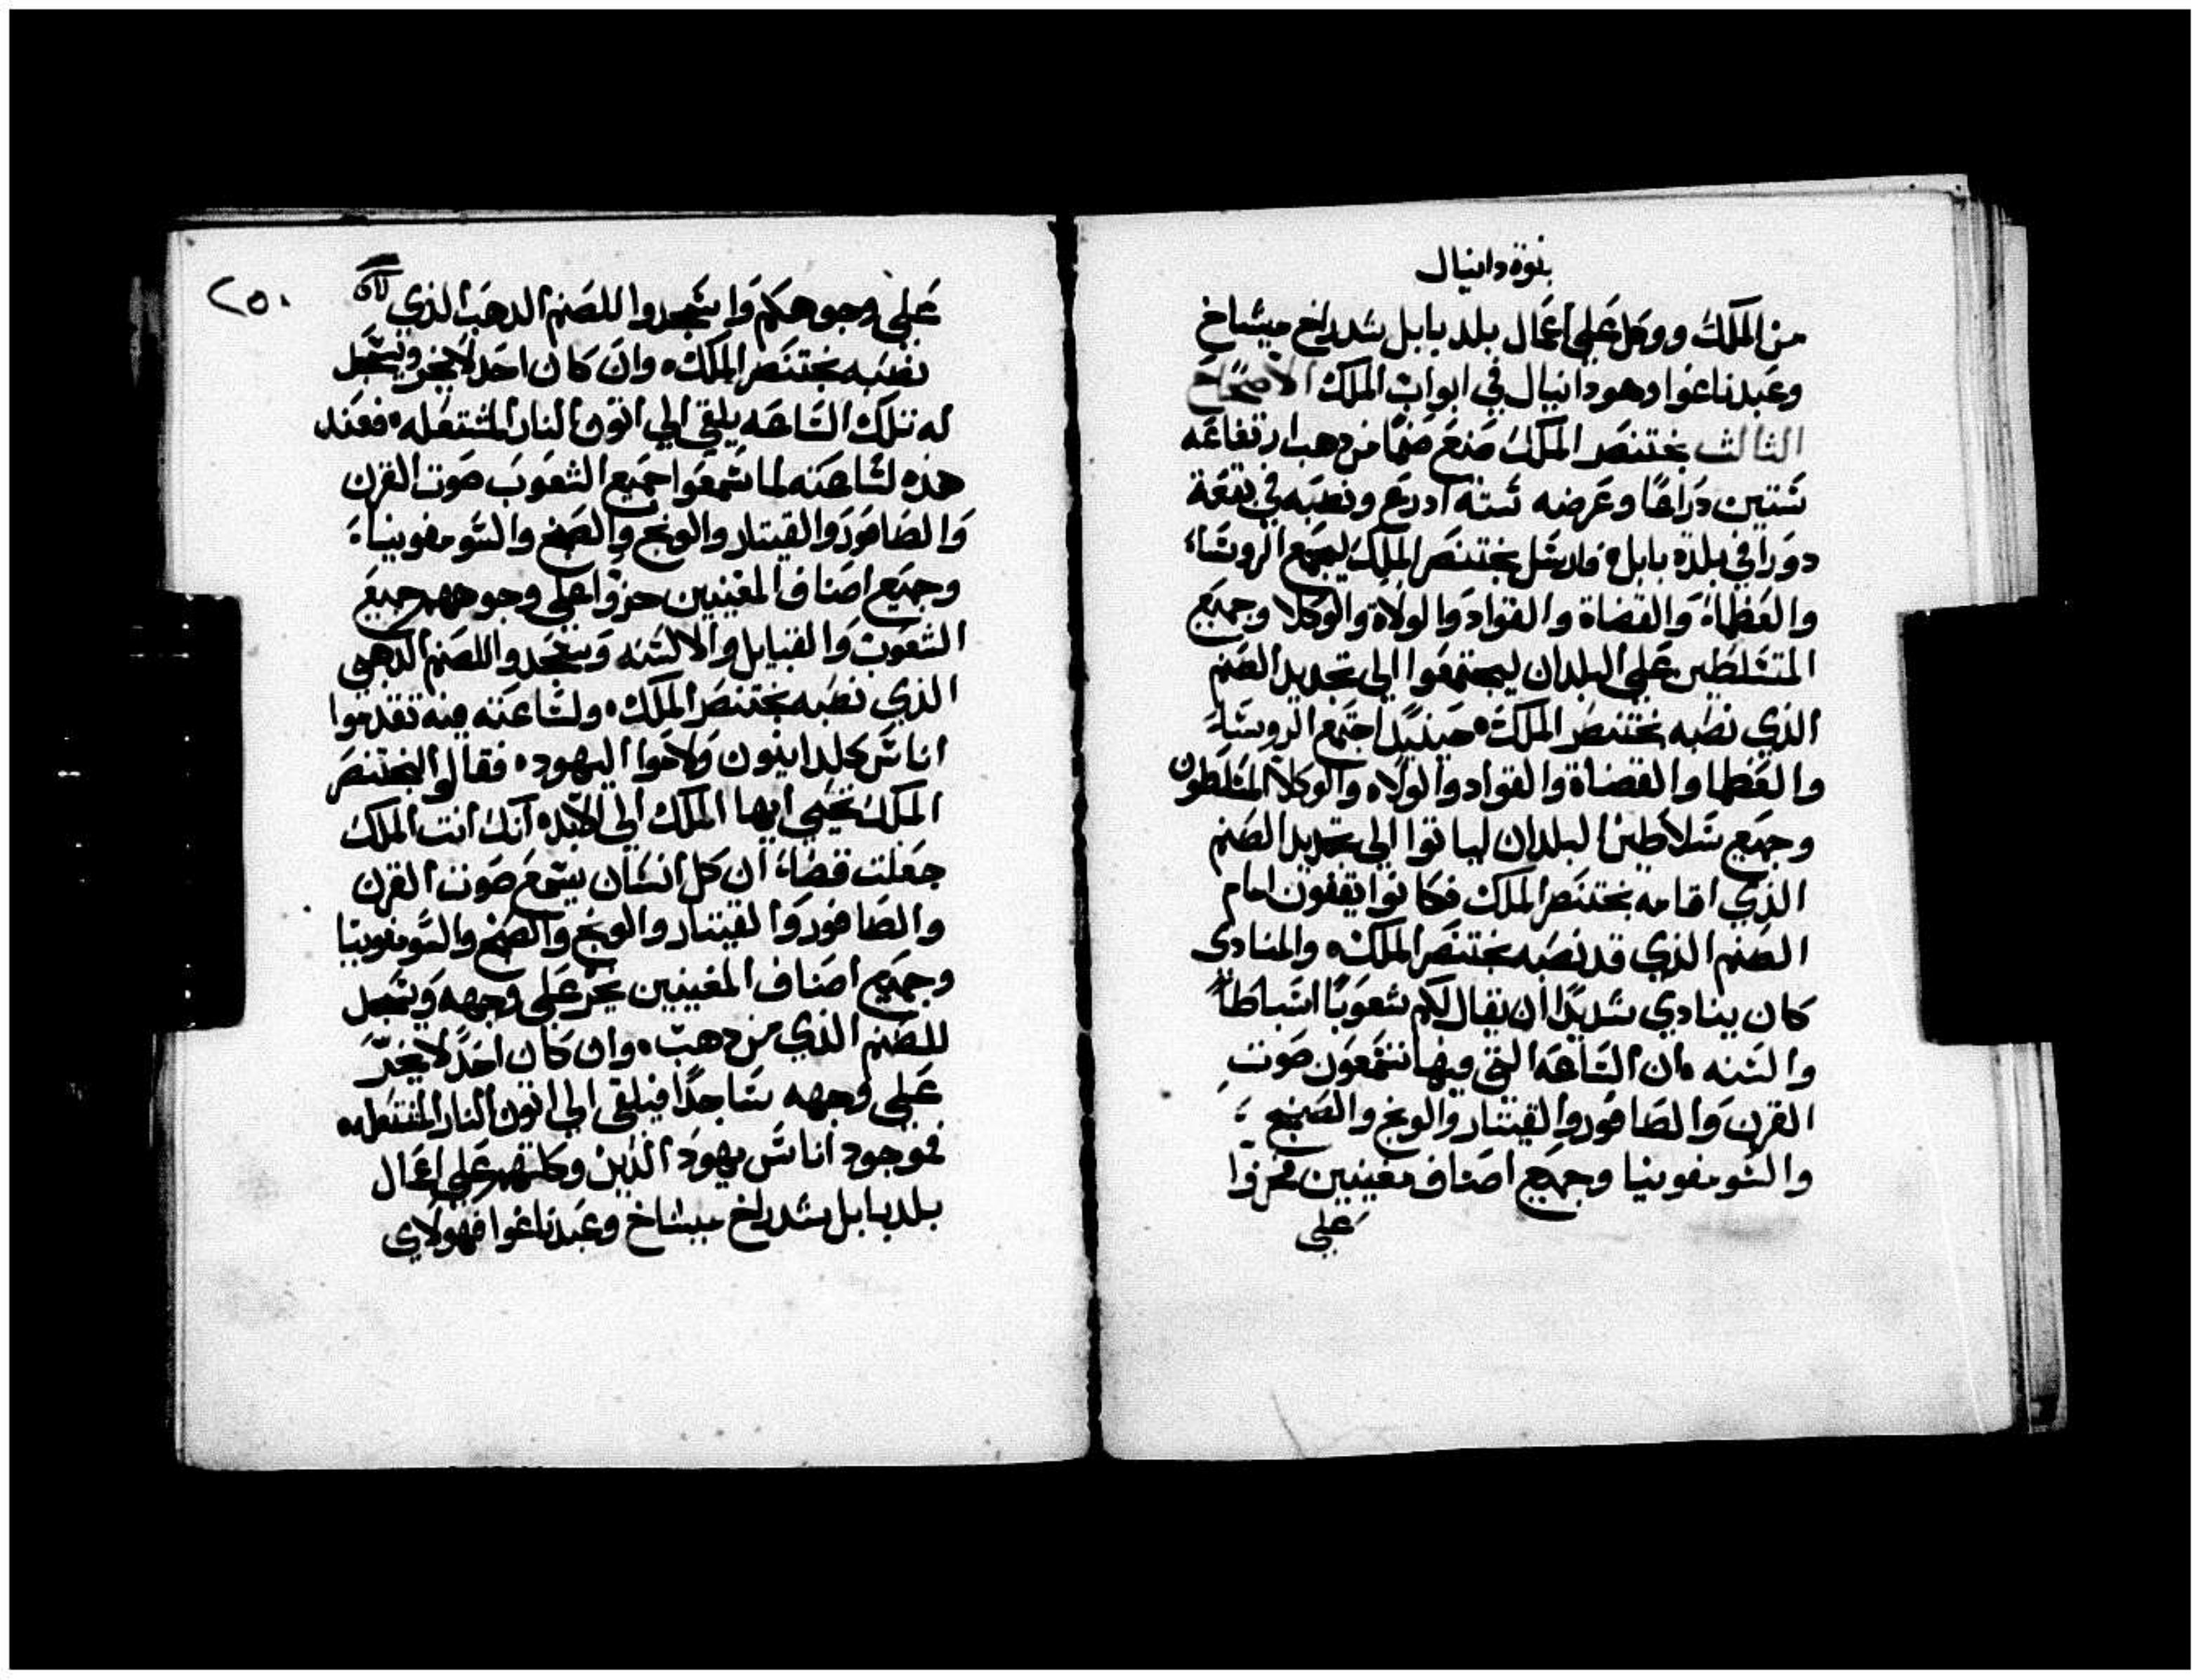 نبوة دانيال
من الملك ووكل على اعمال بلد بابل شدراخ ميشاخ
وعبدناغوا وهو دانيال في ابواب الملك الاصحاح
الثالث بختنصر الملك صنع صنمًا من دهب ارتفاعه
ستين دراعًا وعرضه ستة ادرع ونصبه في بقعة
دورا في بلدة بابل فارسل بختنصر الملك ليجمع الروساء
والعظماء والقضاة والقواد والولاة والوكلا وجميع
المتسلطين على البلدان ليجتمعوا الى تجديد الصنم
الذي نصبه بختنصر الملك حينيد اجتمع الروساء
والعظما والقضاة والقواد والولاه والوكلا المتسلطون
وجميع سلاطين البلدان لياتوا الى تجديد الصنم
الذي اقامه بختنصر الملك فكانوا يقفون امام
الصنم الذي قد نصبه بختنصر الملك والمنادى
كان ينادي شديدًا ان يقال لكم شعوبًا اسباطًا
والسنه ان الساعه التي فيها تسمعون صوت
القرن والصافور والقيتار والونج والصنج
والسومفونيا وجميع اصناف مغنيين فخروا
على
٢٥٠
على وجوهكم واسجدوا للصنم الدهب الذي
نصبه بختنصر الملك وان كان احد لا يخر ويسجد
له تلك الساعه يلقى الى اتون النار المشتعله فعند
هذه لساعته لما سمعوا جميع الشعوب صوت القرن
والصافور والقيتار والونج والصنج والسومفونيا
وجميع اصناف المغنيين خروا على وجوههم جميع
الشعوب والقبايل والالسنه وسجدوا للصنم الدهبي
الذي نصبه بختنصر الملك ولساعته منه تقدموا
اناس كلدانيون ولاحوا اليهود فقالوا لبختنصر
الملك تحيي ايها الملك الى الابد انك انت الملك
جعلت قضاء ان كل انسان يسمع صوت القرن
والصافور والقيتار والونج والصنج والسومفونيا
وجميع اصناف المغنيين يخر على وجهه ويسجد
للصنم الذي من دهب وان كان احدًا لا يخرّ
على وجهه ساجدًا فيلقى الى اتون النار المشتعله
فموجود اناس يهود الذين وكلتهم على اعمال
بلد بابل شدراخ ميشاخ وعبدناغوا فهولاي